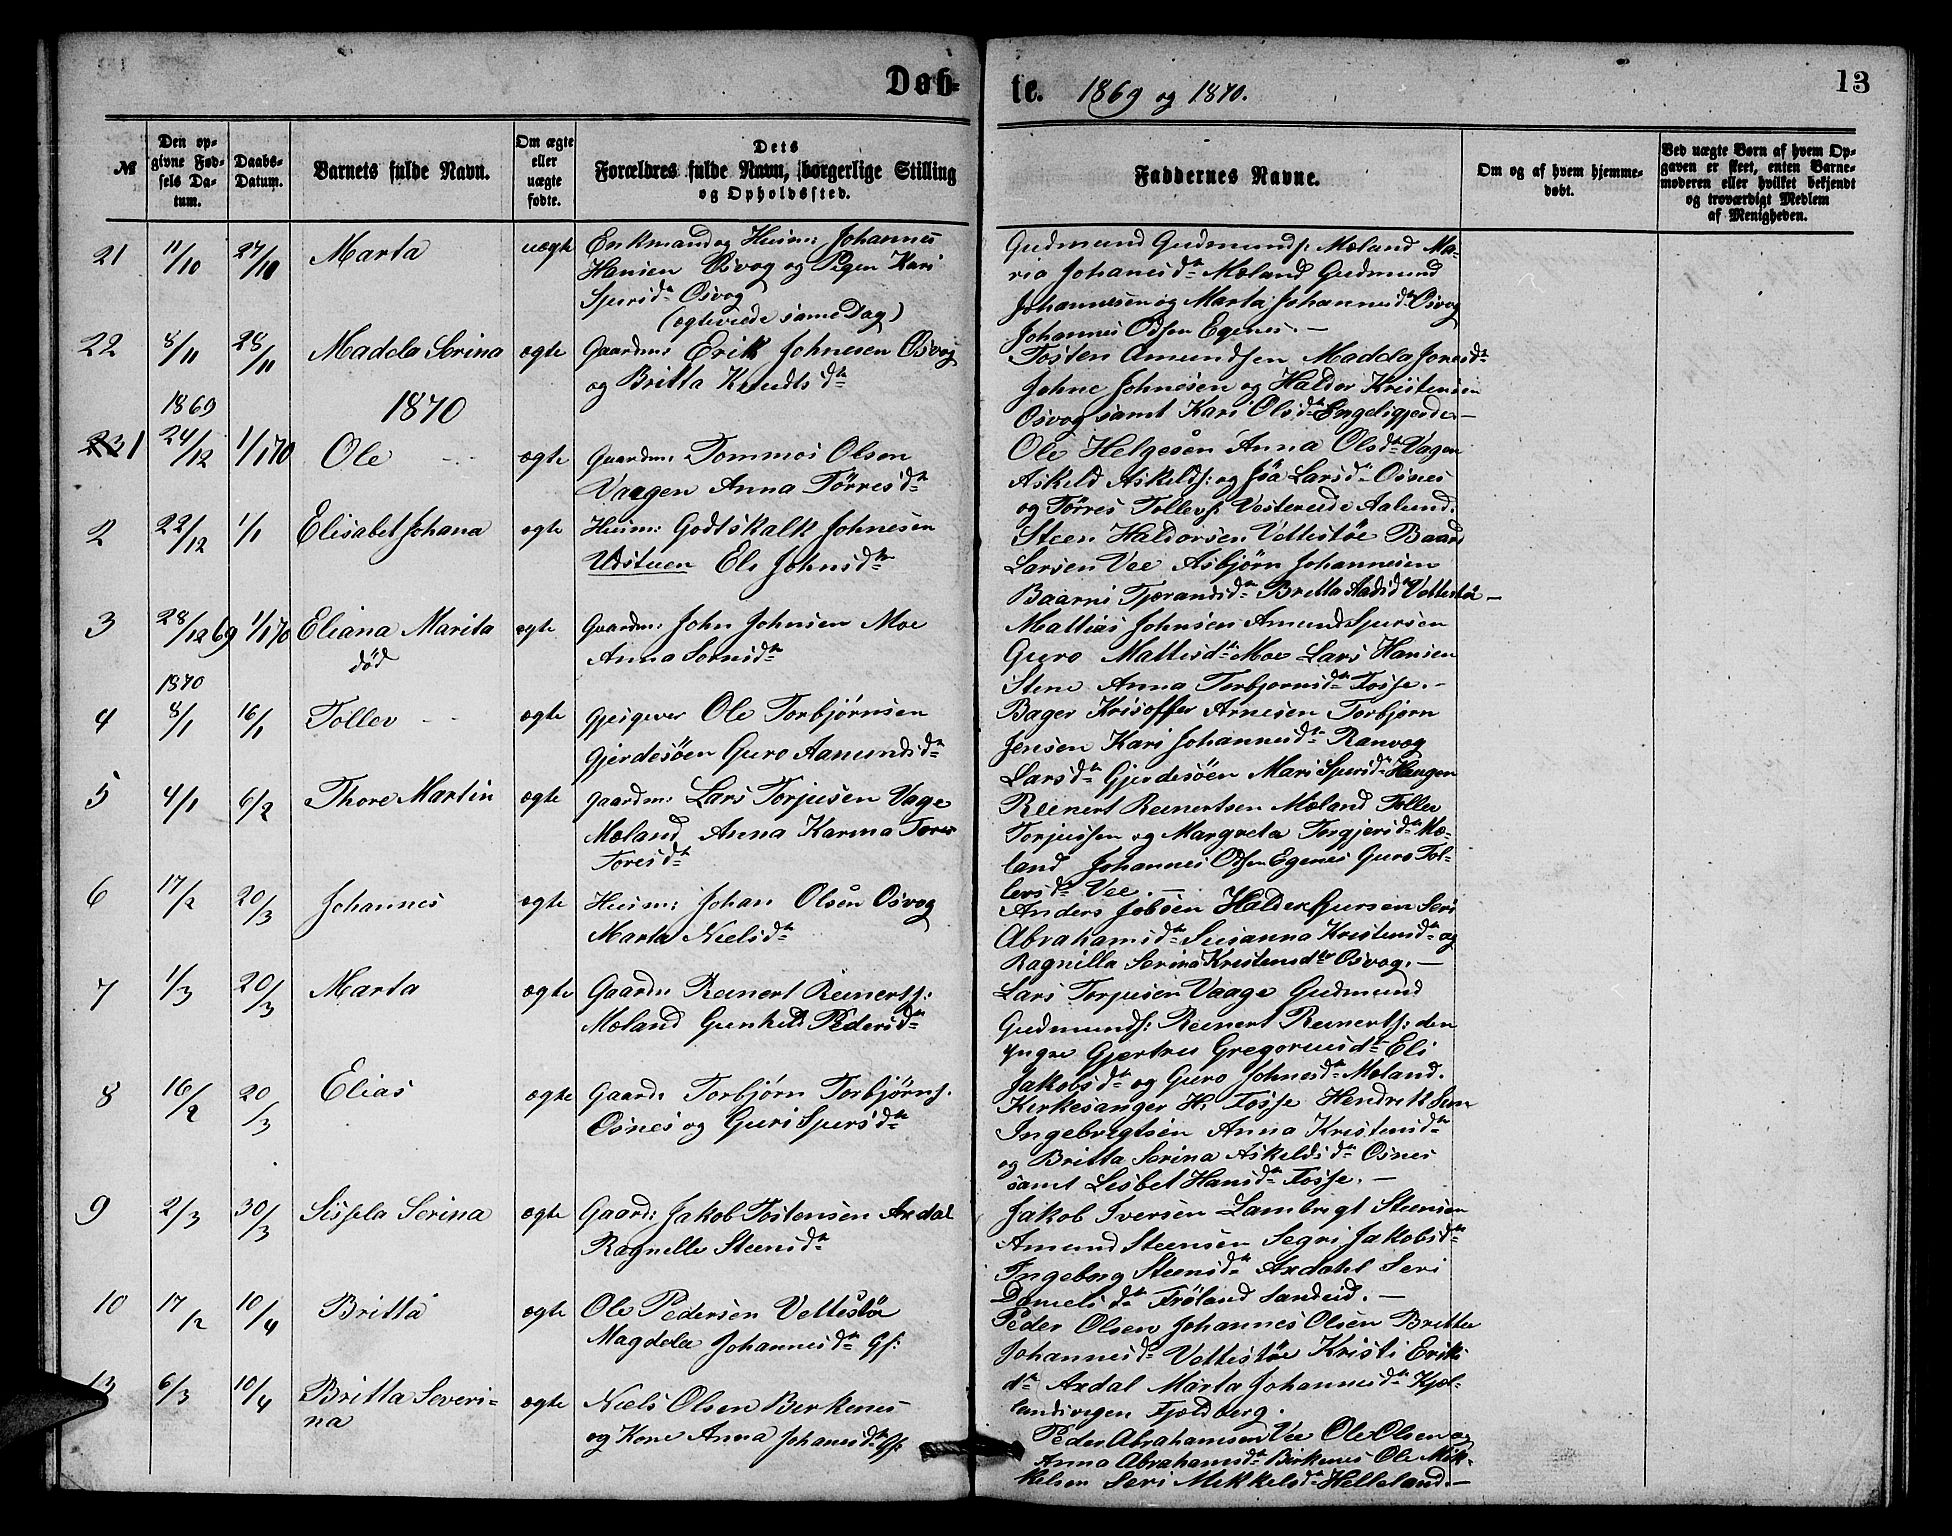 Døb-
te. 1869 og 1870.
13
№
Den op-
givne Fød-
sels Da-
tum.
Daabs-
Datum.
Barnets fulde Navn.
Om ægte
eller
uægte
fødte.
Dets
Forældres fulde Navn, borgerlige Stilling
og Opholdssted.
Faddernes Navne.
Om og af hvem hjemme-
døbt.
Ved uægte Børn af hvem Op-
gaven er skeet, enten Barne-
moderen eller hvilket bekjendt
og troværdigt Medlem
af Menigheden.
21 11/10 27/10 Marta uægte
Enkmand og Huusm: Johannes
Hansen Osvog og Pigen Kari
Sjursdtr Osvog
(ægteviede same Dag)
Gudmund Gudmunds: Mæland Ma-
ria Johanesdtr Mæland Gudmund
Johannesen og Marta Johannesdtr Osvog
Johannes Odsen Egenes. —
22 8/11 28/11 Madela Serina ægte
Gaardm: Erik Johnesen Osvog
og Britta Knudtsdtr
Tosten Amundsen Madda Jonesdtr
Johne Johnesen og Haldor Kristensen
Osvog samt Kari Olsdtr Engelsgjerde. —
1869
1870
23 1 24/12 1/1 70 Ole ægte
Gaardm: Tommos Olsen
Vaagen Anna Tørresdtr
Ole Helgesen Anna Olsdtr Vagen
Askeld Askelds: og Larsdtr Osnes
og Tørres Tollevs: Vestereide Aalund.
2 22/12 1/1 Elisabet Johana ægte
Husm: Godtskalk Johnesen
Udstuen Els Johnsdtr
Steen Haldorsen Vettestøe Baard
Larsen Vee Asbjørn Johannesen
Baarni Tjerandsdtr Britta Vettestøl —
3 28/12 69 1/1 70 Eliana Marita ægte
død
Gaardm: John Johnsen Moe
Anna Sørensdtr
Mattias Johnsen Amund Sjursen
Guro Mattisdtr Moe Lars Hansen
Stene Anna Torbjørnsdtr Fosse. —
1870
4 8/1 16/1 Tollev ægte
Gjesgever Ole Torbjørnsen
Gjerdesøen Guro Aamundsdtr
Bager Krisoffer Arnesen Torbjørn
Jensen Kari Johannesdtr Ranvog
Larsdtr Gjerdesøen Mari Sjursdtr Haugen
5 4/1 6/2 Thore Martin ægte
Gaardm: Lars Torjusen Vage
Mæland Anna Karina Tores
Toresdtr
Reinert Reinertsen Mæland Tollev
Torjussen og Margreta Torgjersdtr Mæ-
land Johannes Odsen Egenes Guro Tol-
levsdtr Vee. —
6 17/2 20/3 Johannes ægte
Huusm: Johan Olsen Osvog
Marta Nielsdtr
Anders Jobsen Haldor Sjursen Seri
Abrahamsdtr Susanna Kristensdtr og
Ragnilla Serina Kristensdtr Osvog. —
7 1/3 20/3 Marta ægte
Gaardm: Reinert Reinerts:
Mæland Gunhild Pedersdtr
Lars Torjusen Vaage Gudmund
Gudmunds: Reinert Reinerts: den
yngre Gjertru Gregoriusdtr Eli
Jakobsdtr og Guro Johnesdtr Mæland.
8 16/2 20/3 Elias ægte
Gaard: Torbjørn Torbjørns.
Osnes og Guri Sjursdtr
Kirkesanger H: Fosse Hendrik
Ingebrigtsen Anna Kristensdtr
og Britta Serina Askeldsdtr Osnes
samt Lisbet Hansdtr Fosse. —
9 2/3 30/3 Sissela Serina ægte
Gaard: Jakob Tostensen Axdal
Ragnelle Steensdtr
Jakob Iversen Lambrigt Steensen
Amund Steensen Segri Jakobsdtr
Ingeborg Steensdtr Axdahl Seri
Danielsdtr Frøland Sandeid. —
10 17/2 10/4 Britta ægte
Ole Pedersen Vettestøe
Magdela Johannesdtr Gf:
Peder Olsen Johannes Olsen Britta
Johannesdtr Vettestøe Kristi Eriks
dtr Axdal Marta Johannesdtr Kjæl-
landsvegen Fjeldberg.
13 6/3 10/4 Britta Severi-
na ægte
Niels Olsen Berkenes
og Kone Anna Johanesdtr Gf:
Peder Abrahamsen Vee Ole Olsen og
Anna Abrahamsdtr Birkenes Ole Mik-
kelsen Seri Mikkelsdtr Helleland. —